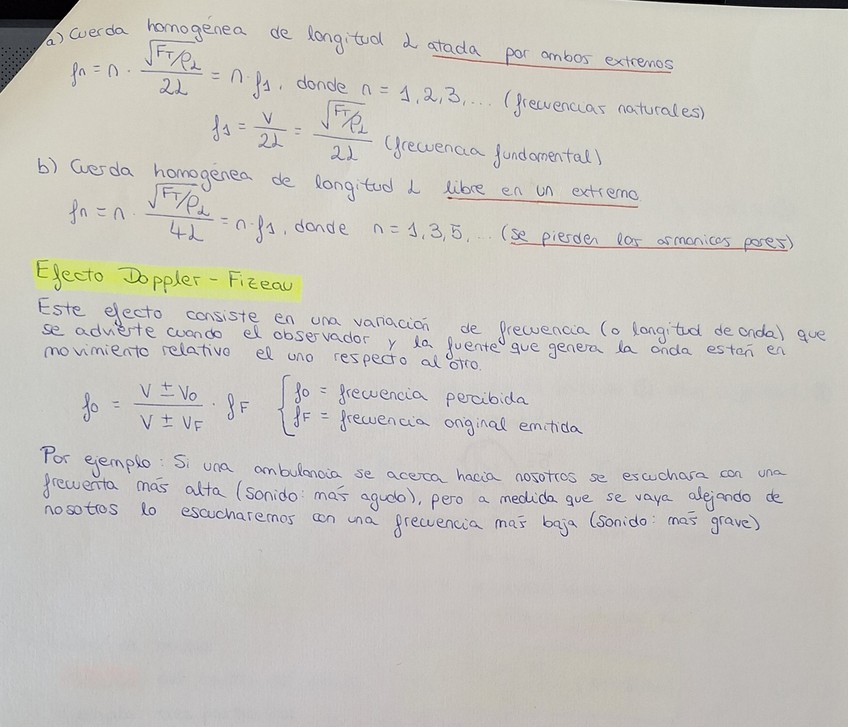 a) Cuerda homogénea de longitud L atada por ambos extremos
fn = n · √(FT/ρL) / 2L = n · f1, donde n = 1, 2, 3, ... (frecuencias naturales)
f1 = V / 2L = √(FT/ρL) / 2L (frecuencia fundamental)
b) Cuerda homogénea de longitud L libre en un extremo
fn = n · √(FT/ρL) / 4L = n · f1, donde n = 1, 3, 5, ... (se pierden los armonicos pares)
Efecto Doppler - Fizeau
Este efecto consiste en una variación de frecuencia (o longitud de onda) que
se advierte cuando el observador y la fuente que genera la onda estań en
movimiento relativo el uno respecto al otro.
fo = (V ± Vo) / (V ± VF) · fF { fo = frecuencia percibida
fF = frecuencia original emitida
Por ejemplo: Si una ambulancia se acerca hacia nosotros se escuchara con una
más alta (sonido: más agudo), pero a medida que se vaya alejando de
nosotros lo escucharemos con una frecuencia más baja (sonido: más grave)